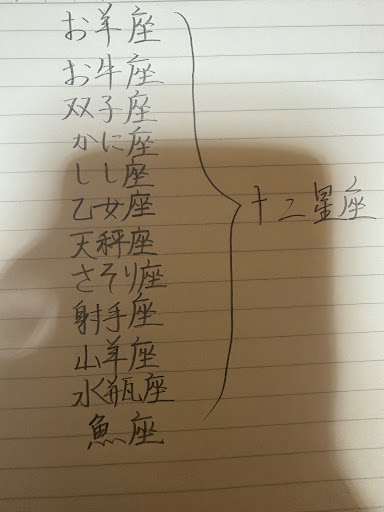 お羊座
お牛座
双子座
かに座
しし座
乙女座
天秤座
さそり座
射手座
山羊座
水瓶座
魚座
十二星座